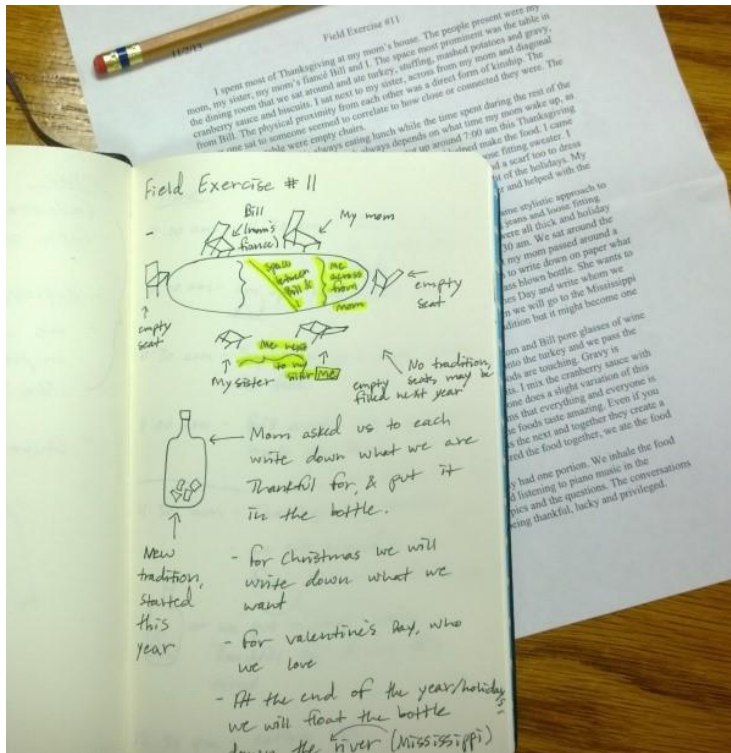 Field Exercise #11
11/2/13
I spent most of Thanksgiving at my mom's house. The people present were my
mom, my sister, my mom's fiancé Bill and I. The space most prominent was the table in
the dining room that we sat around and ate turkey, stuffing, mashed potatoes and gravy,
cranberry sauce and biscuits. I sat next to my sister, across from my mom and diagonal
from Bill. The physical proximity from each other was a direct form of kinship. The
one sat to someone seemed to correlate to how close or connected they were. The
table were empty chairs.
always eating lunch while the time spent during the rest of the
always depends on what time my mom wake up, as
up around 7:00 am this Thanksgiving
helped make the food. I came
loose fitting sweater. I
d a scarf too to dress
of the holidays. My
and helped with the
same stylistic approach to
jeans and loose fitting
were all thick and holiday
30 am. We sat around the
my mom passed around a
to write down on paper what
glass blown bottle. She wants to
Day and write whom we
we will go to the Mississippi
tradition but it might become one
om and Bill pore glasses of wine
into the turkey and we pass the
foods are touching. Gravy is
I mix the cranberry sauce with
one does a slight variation of this
that everything and everyone is
the foods taste amazing. Even if you
the next and together they create a
the food together, we ate the food
had one portion. We inhale the food
listening to piano music in the
topics and the questions. The conversations
being thankful, lucky and privileged.
Field Exercise #11
Bill
(mom's
fiance)
My mom
space
between
Bill &
me
across
from
mom
empty
seat
empty
seat
me next
to my
sister
My sister
me
empty
No tradition,
seats may be
filled next year
Mom asked us to each
write down what we are
Thankful for, & put it
in the bottle.
New
tradition,
started
this
year
- For Christmas we will
write down what we
want
- For valentine's Day, who
we love
- At the end of the year/holidays
we will float the bottle
down the river (Mississippi)